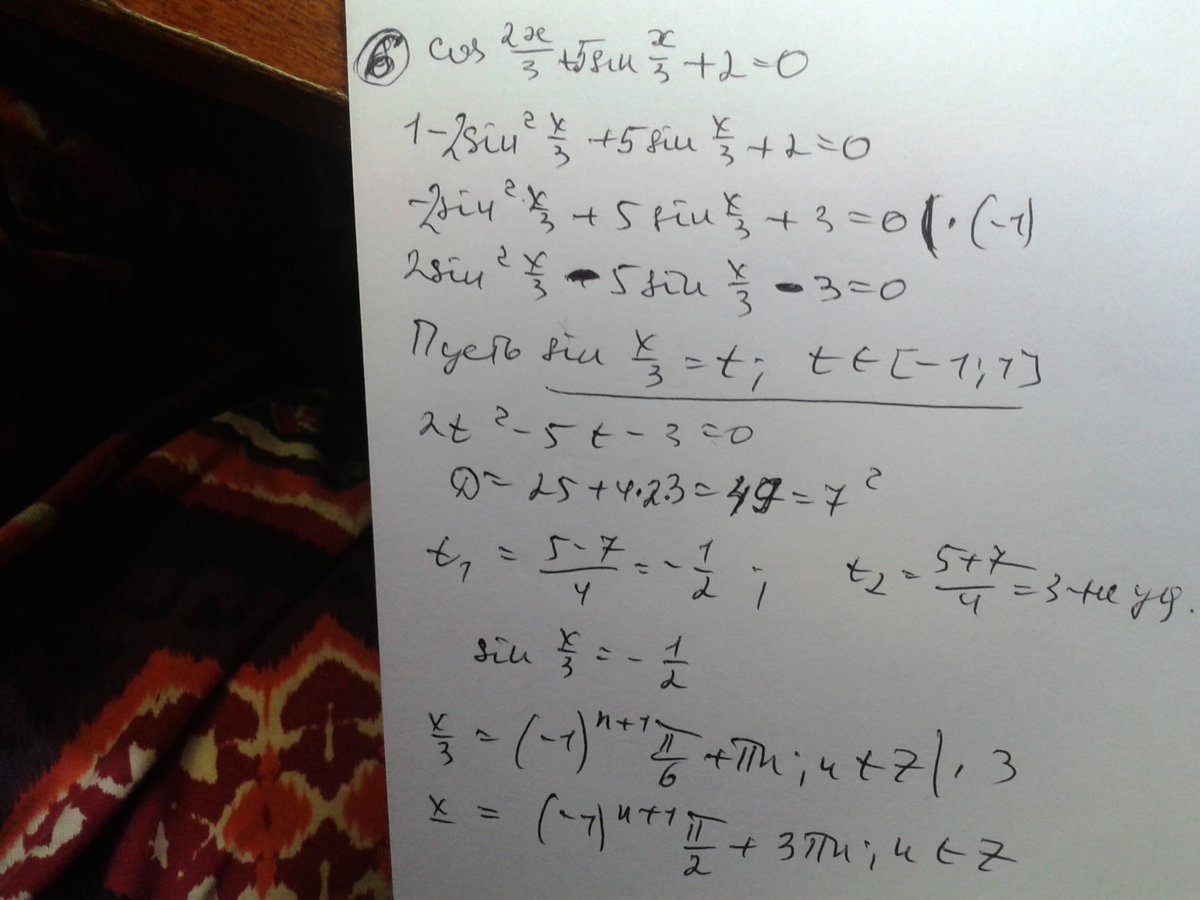 б) cos 2x/3 + 5sin x/3 + 2 = 0
1 - 2sin² x/3 + 5sin x/3 + 2 = 0
-2sin² x/3 + 5sin x/3 + 3 = 0 | · (-1)
2sin² x/3 - 5sin x/3 - 3 = 0
Пусть sin x/3 = t; t ∈ [-1; 1]
2t² - 5t - 3 = 0
D = 25 + 4·2·3 = 49 = 7²
t₁ = (5-7)/4 = -1/2 ; t₂ = (5+7)/4 = 3 - не уд.
sin x/3 = -1/2
x/3 = (-1)ⁿ⁺¹ π/6 + πn; n ∈ Z | · 3
x = (-1)ⁿ⁺¹ π/2 + 3πn; n ∈ Z